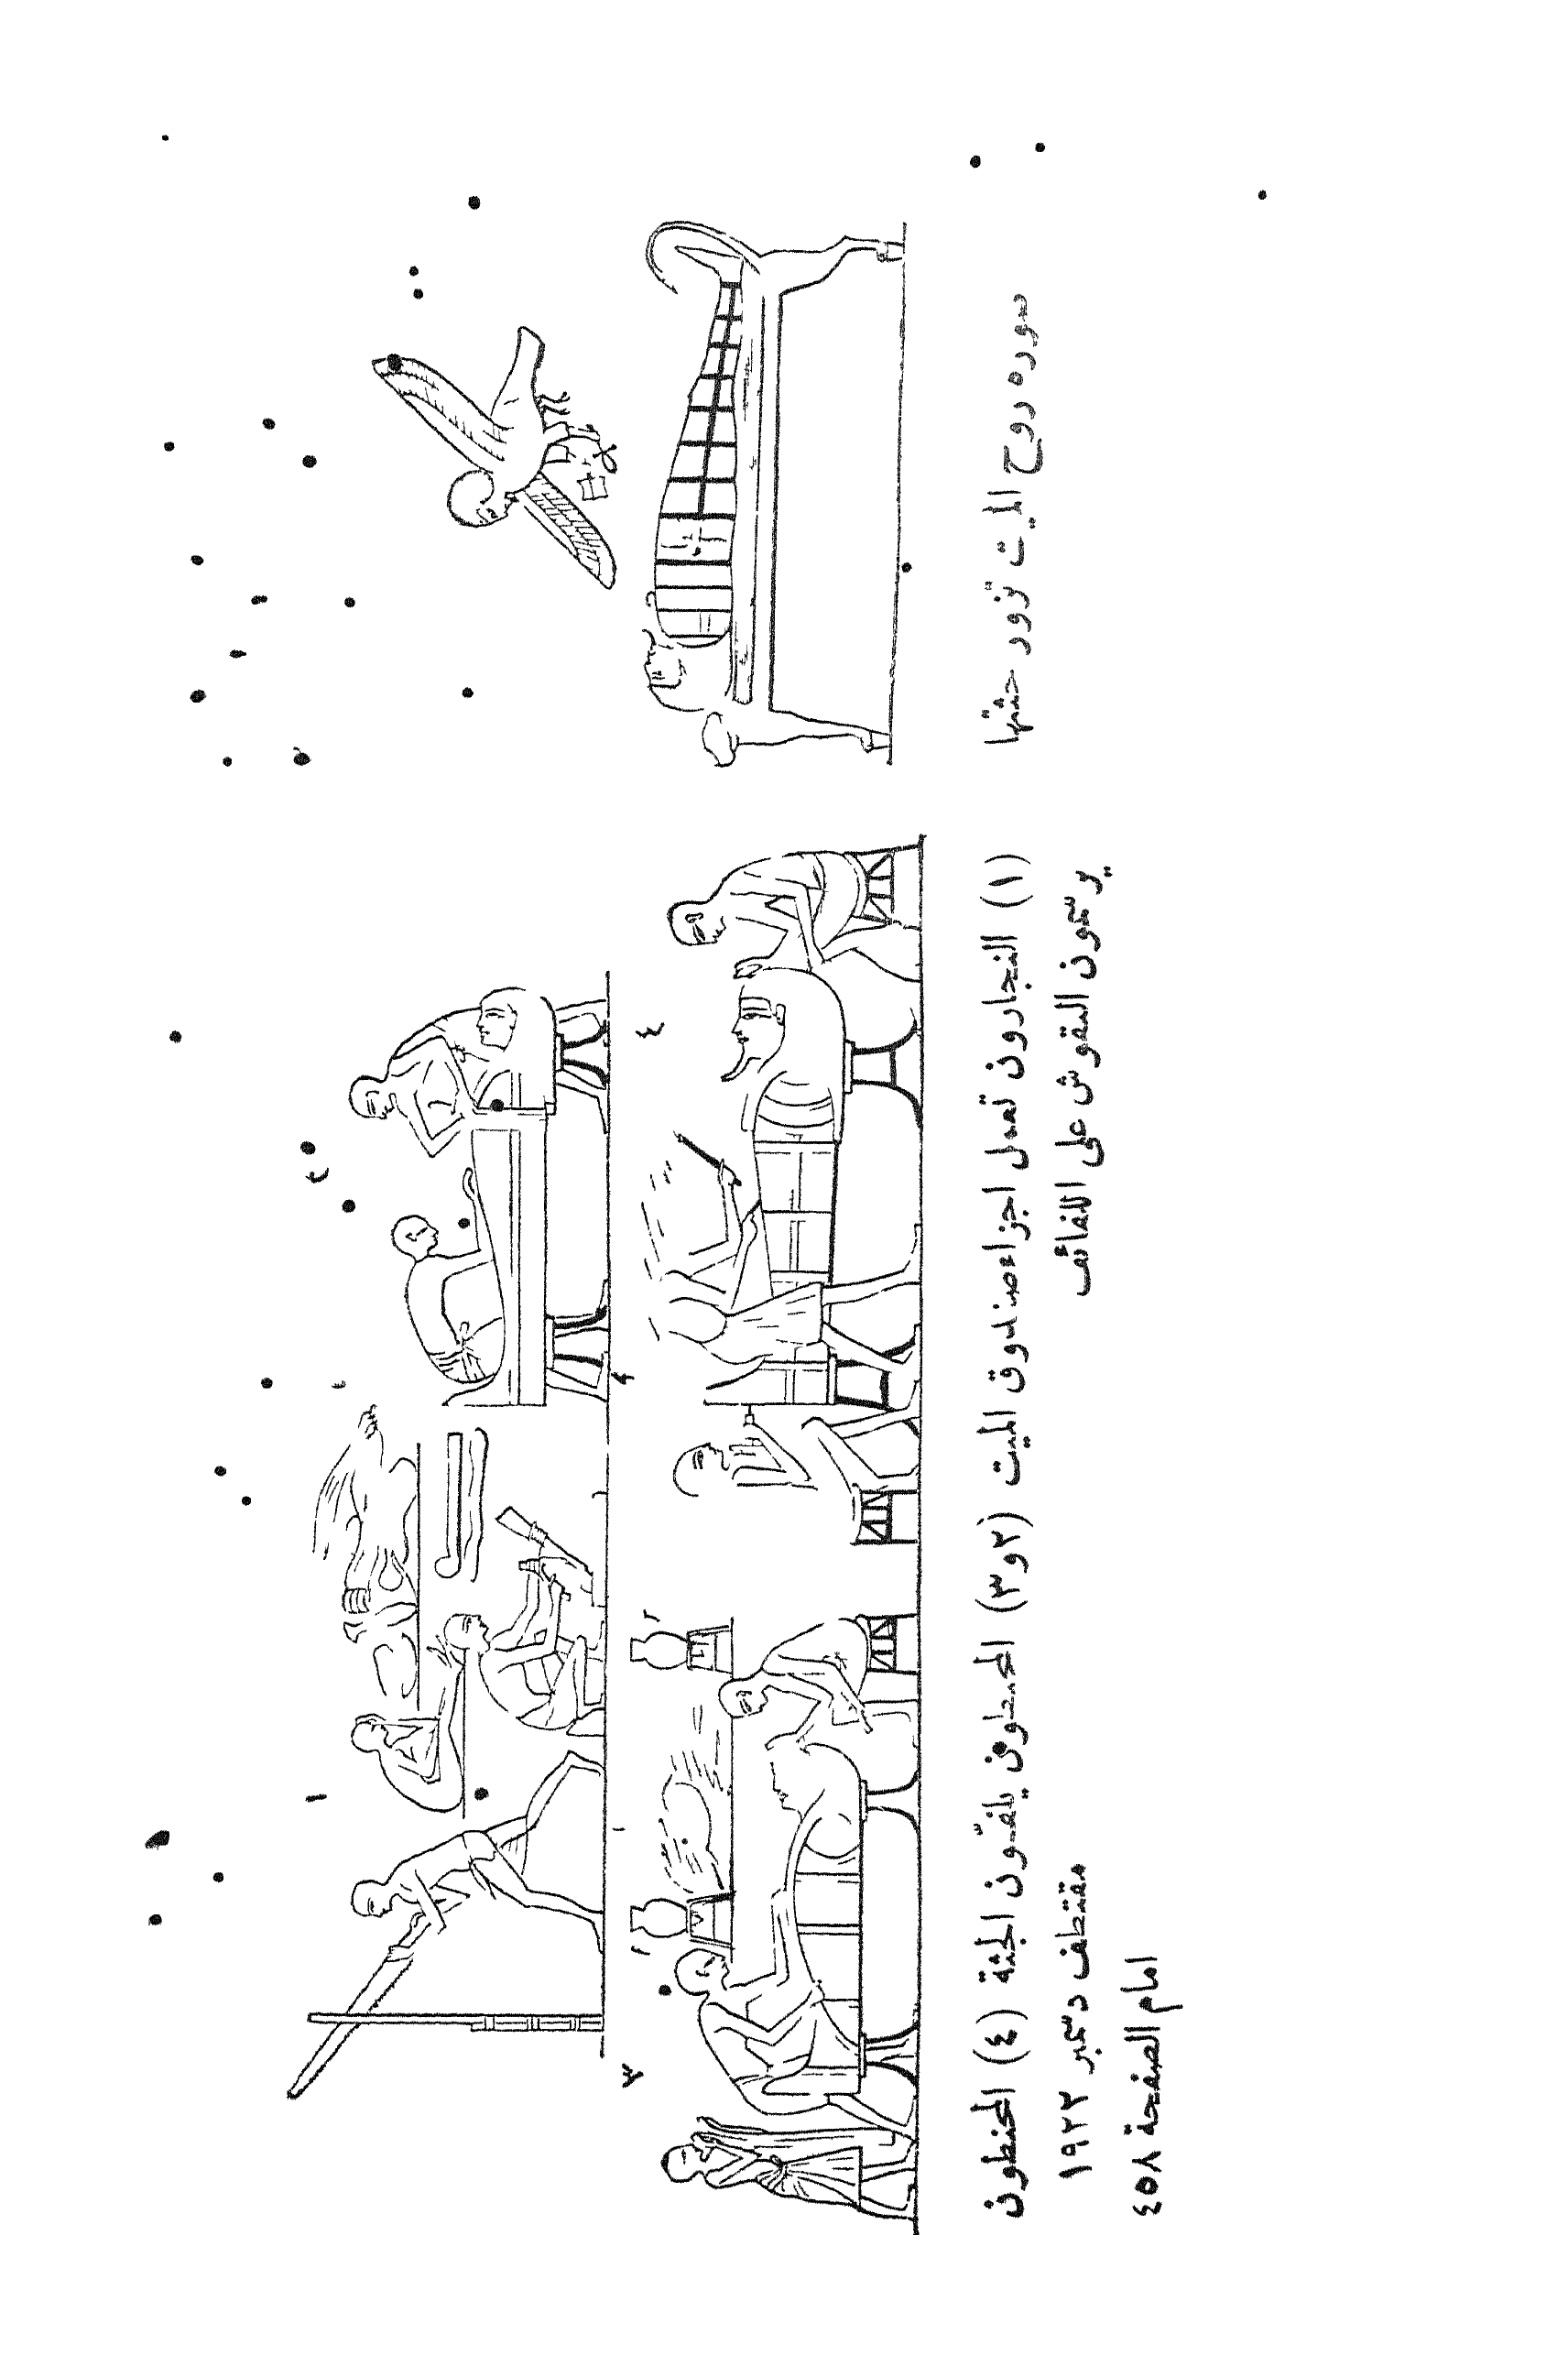 صوره روح الميت تزور جثتها
(١) النجارون تعمل اجزاء صندوق الميت (٢ و٣) المحنطون يلفّون الجثة (٤) المحنطون
يرسمون النقوش على اللفائف
مقتطف دسمبر ١٩٢٢
امام الصفحة ٤٥٨
١
٢
٣
٤